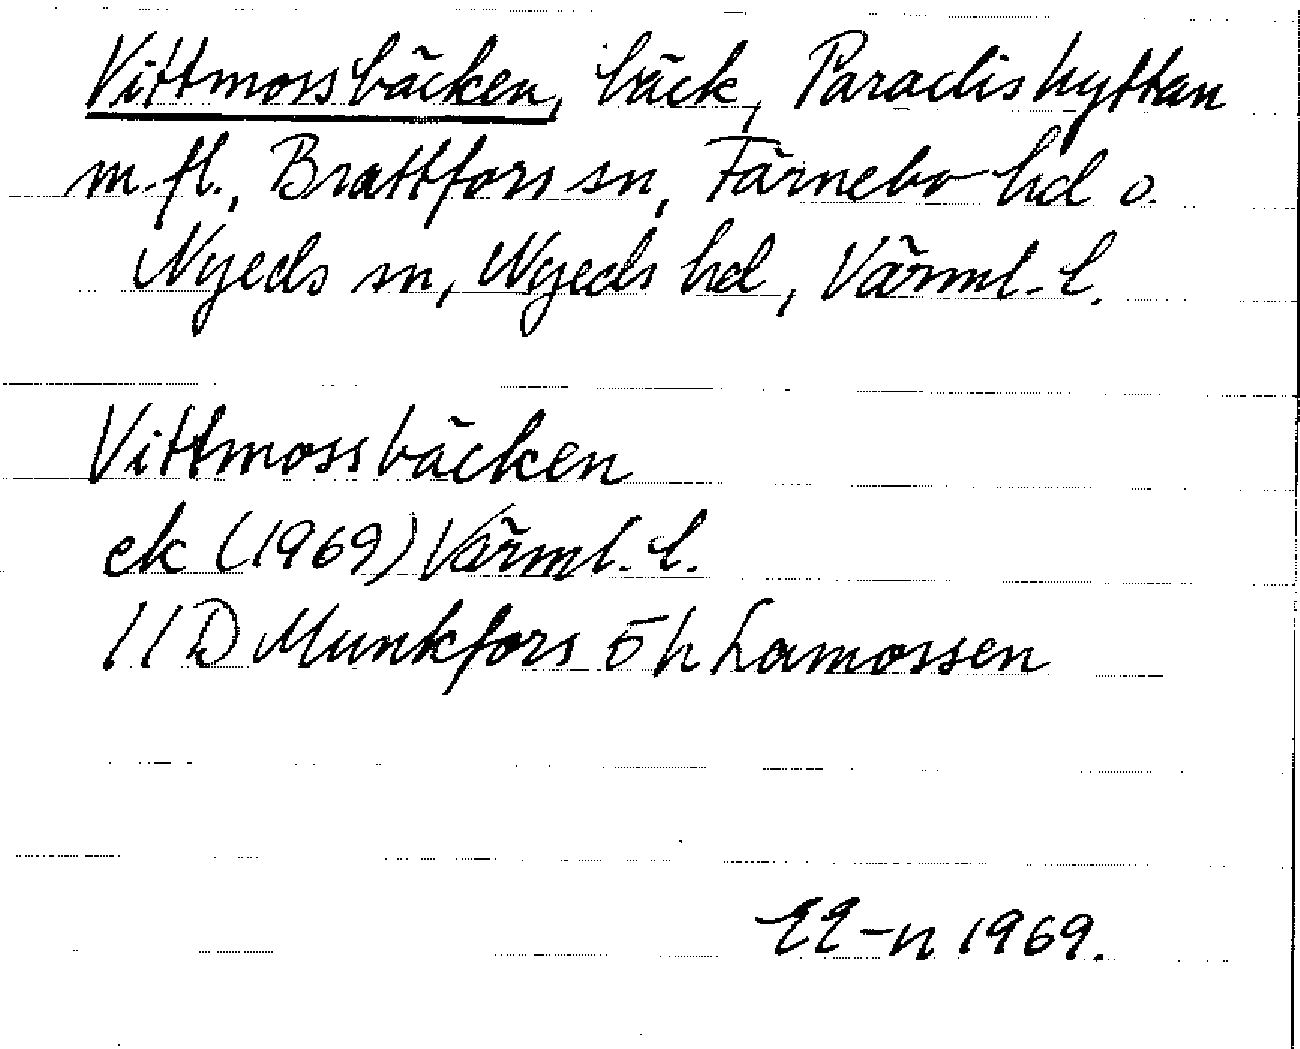 Vittmossbäcken, bäck, Paradishyttan
m.fl., Brattfors sn, Färnebo hd o.
Nyeds sn, Nyeds hd, Värml. l.
Vittmossbäcken
ek (1969) Värml. l.
11D Munkfors 5h Lamossen
EE-n 1969.